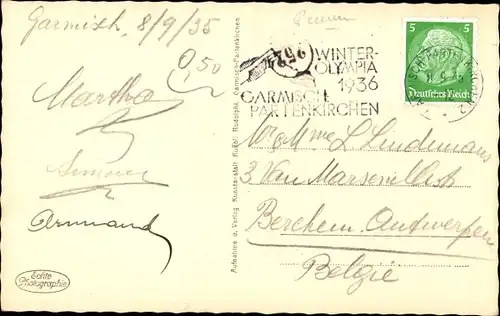 Garmisch, 8/9/35
0,50
Martha
Simone
Armand
Echte
Photographie
Aufnahme u. Verlag Kunstanstalt Rudolf Rudolphi, Garmisch-Partenkirchen
WINTER-
OLYMPIA
1936
GARMISCH-
PARTENKIRCHEN
5 5
Deutsches Reich
Mr & Mme L. Lindemans
3 Van Marsenillestr
Berchem. Antwerpen
Belgie